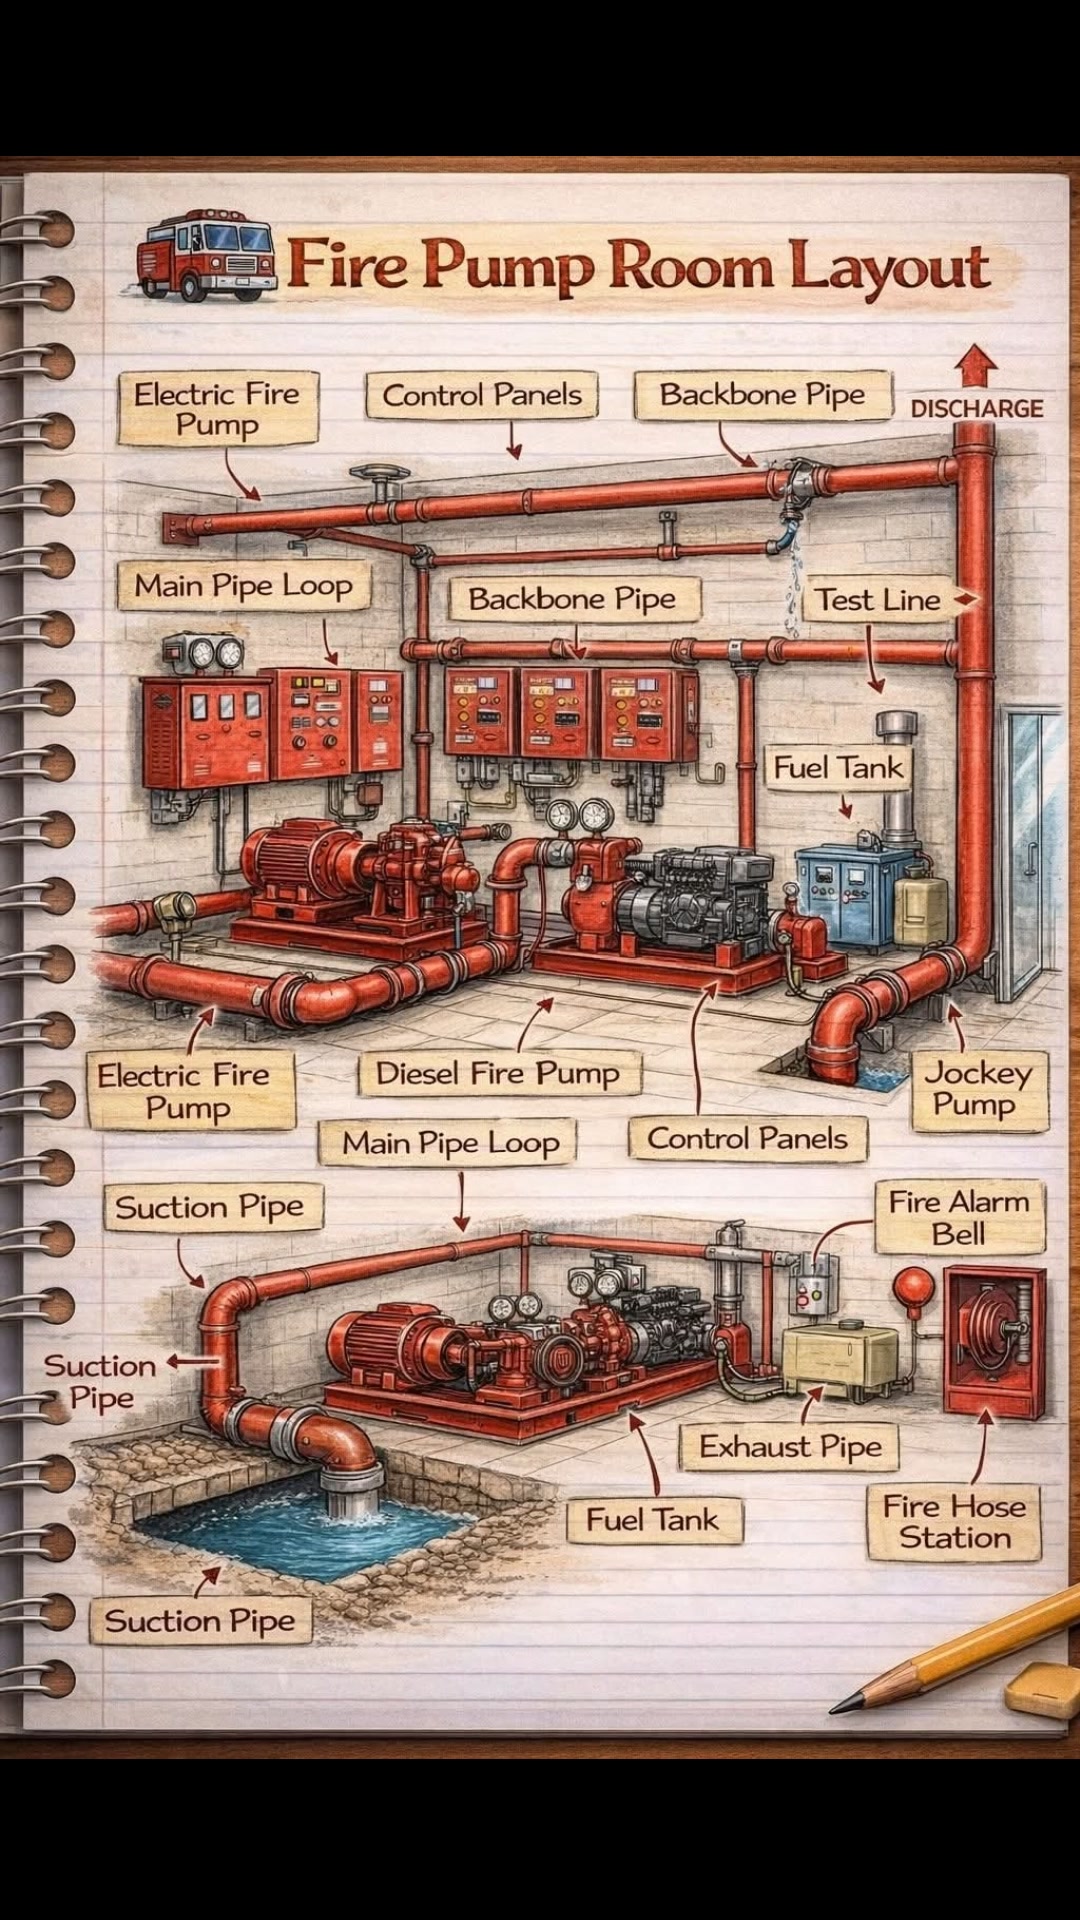 Fire Pump Room Layout
Electric Fire
Pump
Control Panels
Backbone Pipe
DISCHARGE
Main Pipe Loop
Backbone Pipe
Test Line
Fuel Tank
Electric Fire
Pump
Diesel Fire Pump
Jockey
Pump
Main Pipe Loop
Control Panels
Suction Pipe
Fire Alarm
Bell
Suction
Pipe
Exhaust Pipe
Fuel Tank
Fire Hose
Station
Suction Pipe